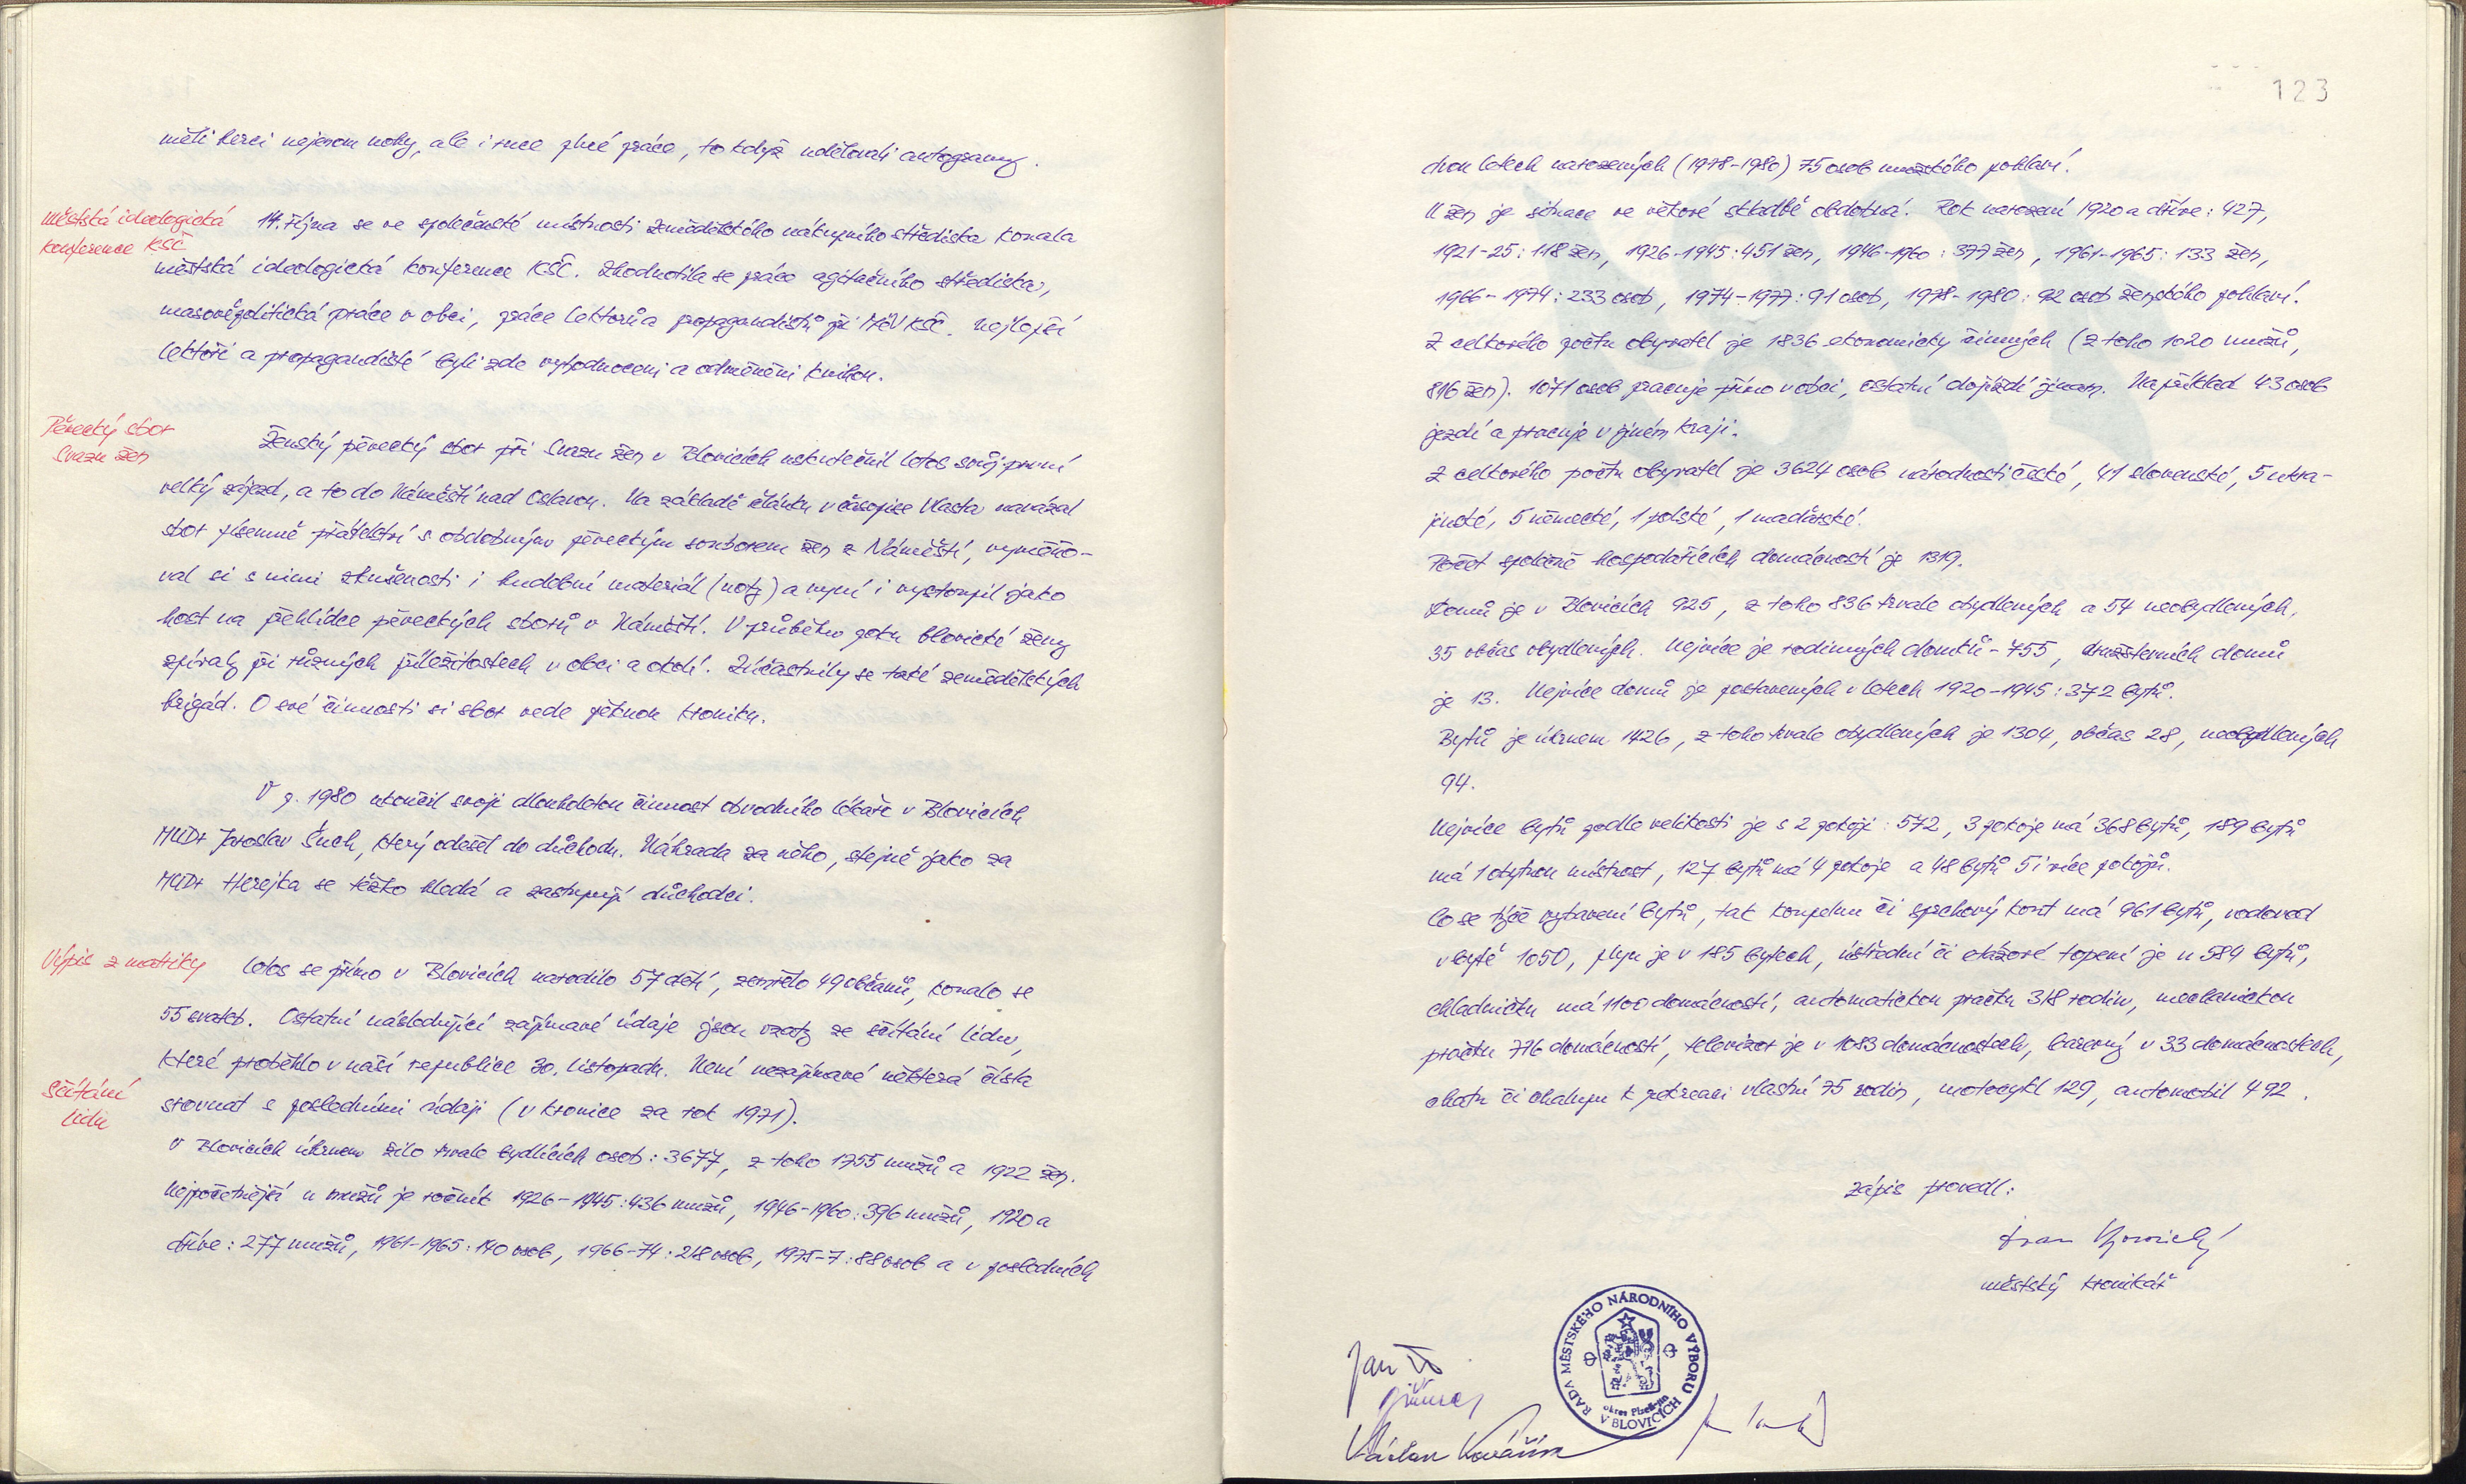 měli herci nejenom nohy, ale i ruce plné práce, to když udělovali autogramy.
Městská ideologická
konference KSČ
14. října se ve společenské místnosti Zemědělského nákupního střediska konala
městská ideologická konference KSČ. Zhodnotila se práce agitačního střediska,
masověpolitická práce v obci, práce lektorů a propagandistů při MěV KSČ. Nejlepší
lektoři a propagandisté byli zde vyhodnoceni a odměněni knihou.
Pěvecký sbor
Svazu žen
Ženský pěvecký sbor při Svazu žen v Blovicích uskutečnil letos svůj první
velký zájezd, a to do Náměště nad Oslavou. Na základě článku v časopise Vlasta navázal
sbor písemně přátelství s obdobným pěveckým souborem žen z Náměště, vyměňo-
val si s nimi zkušenosti i hudební materiál (noty) a nyní i vystoupil jako
host na přehlídce pěveckých sborů v Náměšti. V průběhu roku blovické ženy
zpívaly při různých příležitostech v obci a okolí. Zúčastnily se také zemědělských
brigád. O své činnosti si sbor vede pěknou kroniku.
V r. 1980 ukončil svoji dlouholetou činnost obvodního lékaře v Blovicích
MUDr Jaroslav Šuch, který odešel do důchodu. Náhrada za něho, stejně jako za
MUDr Herejka se těžko hledá a zastupují důchodci.
Výpis z matriky
Letos se přímo v Blovicích narodilo 57 dětí, zemřelo 49 občanů, konalo se
55 svateb. Ostatní následující zajímavé údaje jsou vzaty ze sčítání lidu,
které proběhlo v naší republice 30. listopadu. Není nezajímavé některá čísla
Sčítání
lidu
srovnat s posledními údaji (v kronice za rok 1971).
V Blovicích úhrnem žilo trvale bydlících osob: 3677, z toho 1755 mužů a 1922 žen.
Nejpočetnější u mužů je ročník 1926-1945: 436 mužů, 1946-1960: 396 mužů, 1920 a
dříve: 277 mužů, 1961-1965: 140 osob, 1966-74: 218 osob, 1975-7: 88 osob a v posledních
123
dvou letech narozených (1978-1980) 75 osob mužského pohlaví.
U žen je situace ve věkové skladbě obdobná. Rok narození 1920 a dříve: 427,
1921-25: 118 žen, 1926-1945: 451 žen, 1946-1960: 377 žen, 1961-1965: 133 žen,
1966-1974: 233 osob, 1974-1977: 91 osob, 1978-1980: 92 osob ženského pohlaví.
Z celkového počtu obyvatel je 1836 ekonomicky činných (z toho 1020 mužů,
816 žen). 1071 osob pracuje přímo v obci, ostatní dojíždí jinam. Například 43 osob
jezdí a pracuje v jiném kraji.
Z celkového počtu obyvatel je 3624 osob národnosti české, 41 slovenské, 5 ukra-
jinské, 5 německé, 1 polské, 1 maďarské.
Počet společně hospodařících domácností je 1319.
Domů je v Blovicích 925, z toho 836 trvale obydlených a 54 neobydlených,
35 občas obydlených. Nejvíce je rodinných domků - 755, družstevních domů
je 13. Nejvíce domů je postavených v letech 1920-1945: 372 bytů.
Bytů je úhrnem 1426, z toho trvale obydlených je 1304, občas 28, neobydlených
94.
Nejvíce bytů podle velikosti je s 2 pokoji: 572, 3 pokoje má 368 bytů, 189 bytů
má 1 obytnou místnost, 127 bytů má 4 pokoje a 48 bytů 5 i více pokojů.
Co se týče vybavení bytů, tak koupelnu či sprchový kout má 961 bytů, vodovod
v bytě 1050, plyn je v 185 bytech, ústřední či etážové topení je u 584 bytů,
chladničku má 1100 domácností, automatickou pračku 318 rodin, mechanickou
pračku 776 domácností, televizor je v 1083 domácnostech, barevný v 33 domácnostech,
chatu či chalupu k rekreaci vlastní 75 rodin, motocykl 129, automobil 492.
zápis provedl:
městský kronikář
RADA MĚSTSKÉHO NÁRODNÍHO VÝBORU
okres Plzeň-jih
V BLOVICÍCH
Jan
Václav Kovářík